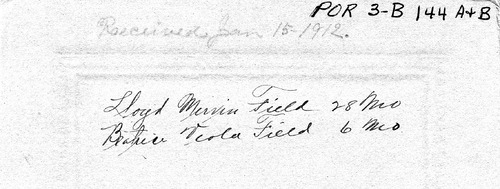 POR 3-B 144 A+B
Received Jan 15-1912.
Lloyd Mervin Field 28 Mo
Beatrice Viola Field 6 Mo